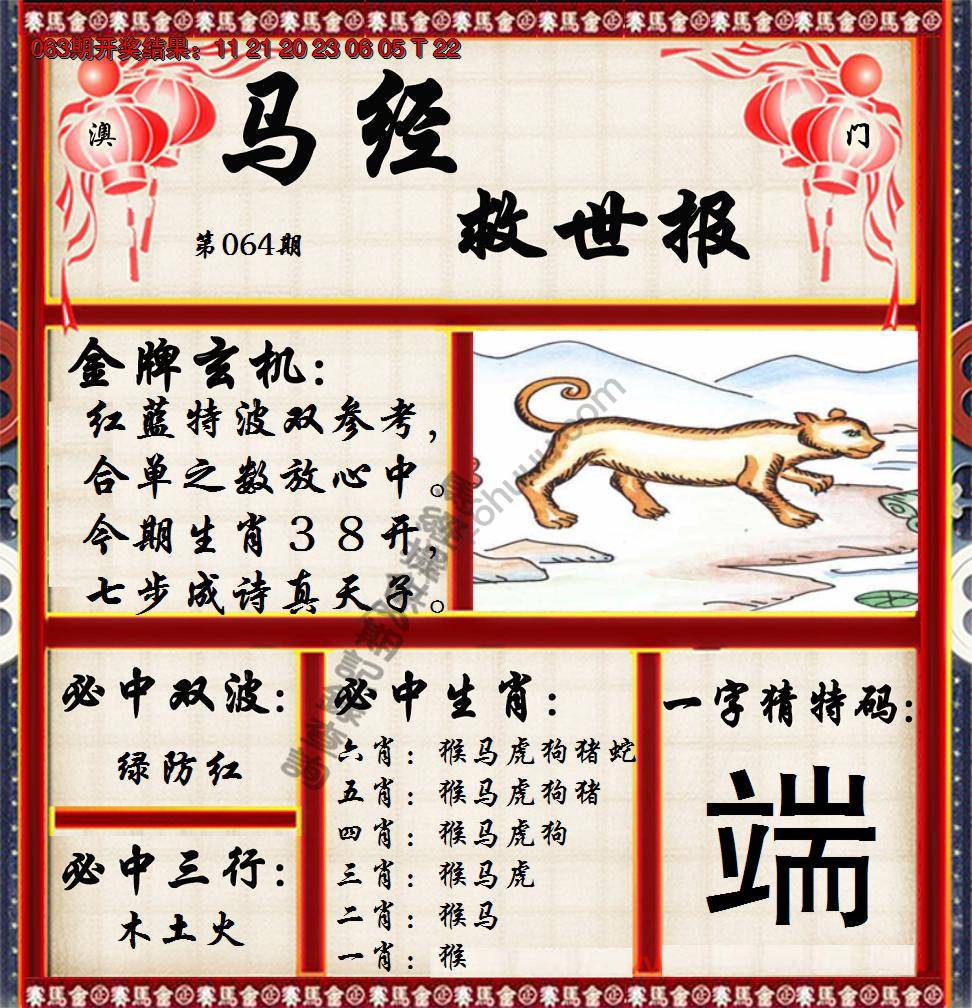 赛馬會
063期开奖结果：11 21 20 23 06 05 T 22
澳
门
马经
救世报
第064期
金牌玄机：
红蓝特波双参考，
合单之数放心中。
今期生肖３８开，
七步成诗真天子。
必中双波：
绿防红
必中三行：
木土火
必中生肖：
六肖：猴马虎狗猪蛇
五肖：猴马虎狗猪
四肖：猴马虎狗
三肖：猴马虎
二肖：猴马
一肖：猴
一字猜特码：
端